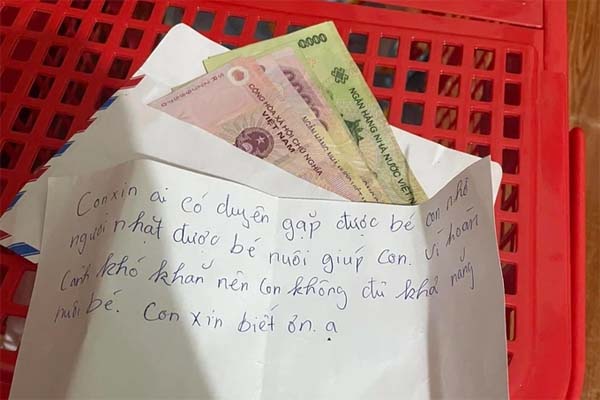 0.000
NGÂN HÀNG NHÀ NƯỚC VIỆT
CỘNG HÒA XÃ HỘI CHỦ NGHĨA
VIỆT NAM
NGÂN HÀNG NHÀ
Con xin ai có duyên gặp được bé con nhờ
người nhặt được bé nuôi giúp con. Vì hoàn
cảnh khó khăn nên con không đủ khả năng
nuôi bé. Con xin biết ơn. ạ